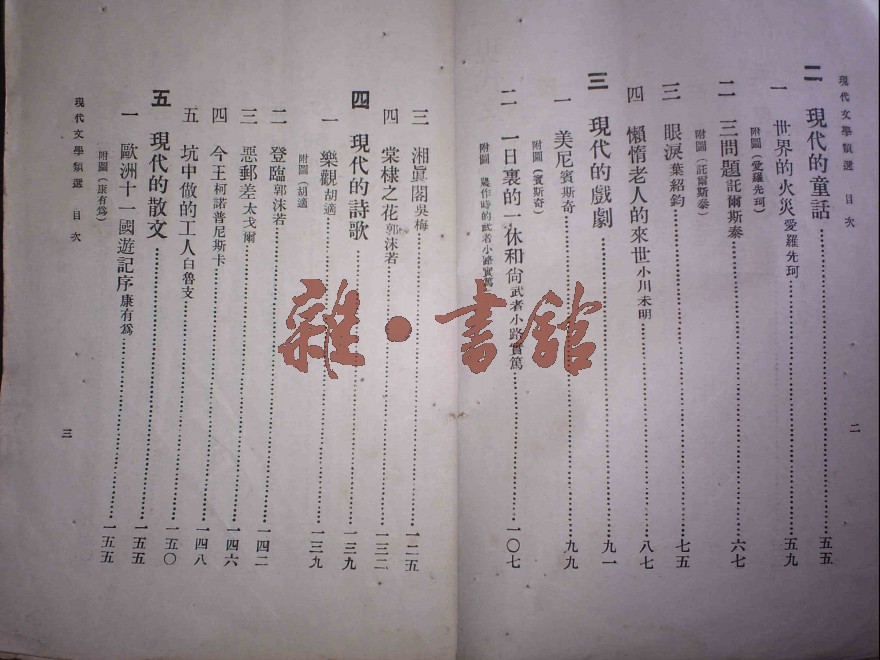 現代文學類選 目次
二 現代的童話……五五
一 世界的火災 愛羅先珂……五九
附圖（愛羅先珂）
二 三問題 託爾斯泰……六七
附圖（託爾斯泰）
三 眼淚 葉紹鈞……七五
四 懶惰老人的來世 小川未明……八七
三 現代的戲劇……九一
一 美尼 賓斯奇……九九
附圖（賓斯奇）
二 一日裏的一休和尙 武者小路實篤……一〇七
附圖 幾作時的武者小路實篤
二
三 湘眞閣 吳梅……一二五
四 棠棣之花 郭沫若……一三二
四 現代的詩歌……一三九
一 樂觀 胡適……一三九
附圖（胡適
二 登臨 郭沫若……一四二
三 惡郵差 太戈爾……一四六
四 今王 柯諾普尼斯卡……一四八
五 坑中做的工人 白魯支……一五〇
五 現代的散文……一五五
一 歐洲十一國遊記序 康有爲……一五五
附圖（康有爲）
現代文學類選 目次
三
雜·書館